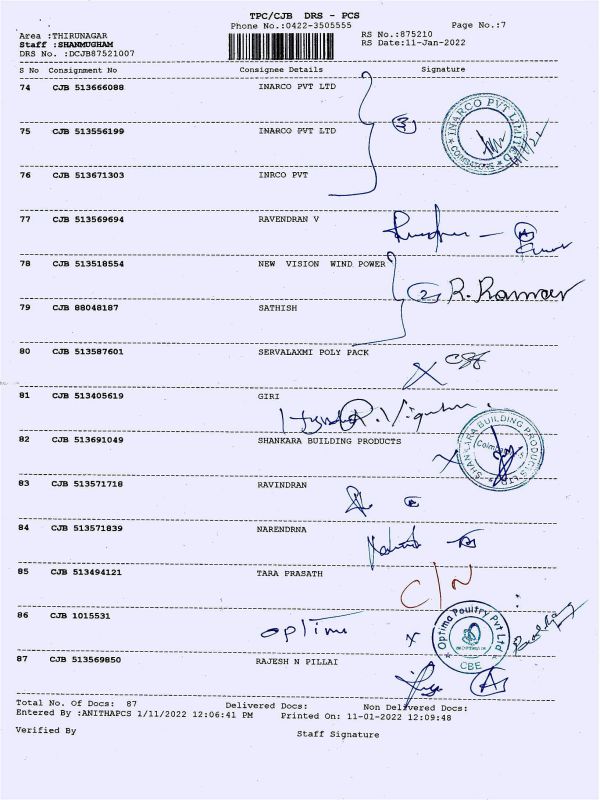 TPC/CJB DRS - PCS
Phone No.:0422-3505555 Page No.:7
Area :THIRUNAGAR RS No.:875210
Staff :SHANMUGHAM RS Date:11-Jan-2022
DRS No. :DCJB87521007
S No Consignment No Consignee Details Signature
74 CJB 513666088 INARCO PVT LTD
INARCO PVT LIMITED
COIMBATORE
75 CJB 513556199 INARCO PVT LTD 3
76 CJB 513671303 INRCO PVT
77 CJB 513569694 RAVENDRAN V
78 CJB 513518554 NEW VISION WIND POWER
2 R. Raman
79 CJB 88048187 SATHISH
80 CJB 513587601 SERVALAXMI POLY PACK
81 CJB 513405619 GIRI
82 CJB 513691049 SHANKARA BUILDING PRODUCTS
SHANKARA BUILDING PRODUCTS LTD
83 CJB 513571718 RAVINDRAN
84 CJB 513571839 NARENDRNA
85 CJB 513494121 TARA PRASATH C/N
86 CJB 1015531
optima
Optima Poultry Pvt Ltd
CBE
87 CJB 513569850 RAJESH N PILLAI
A
Total No. Of Docs: 87 Delivered Docs: Non Delivered Docs:
Entered By :ANITHAPCS 1/11/2022 12:06:41 PM Printed On: 11-01-2022 12:09:48
Verified By Staff Signature